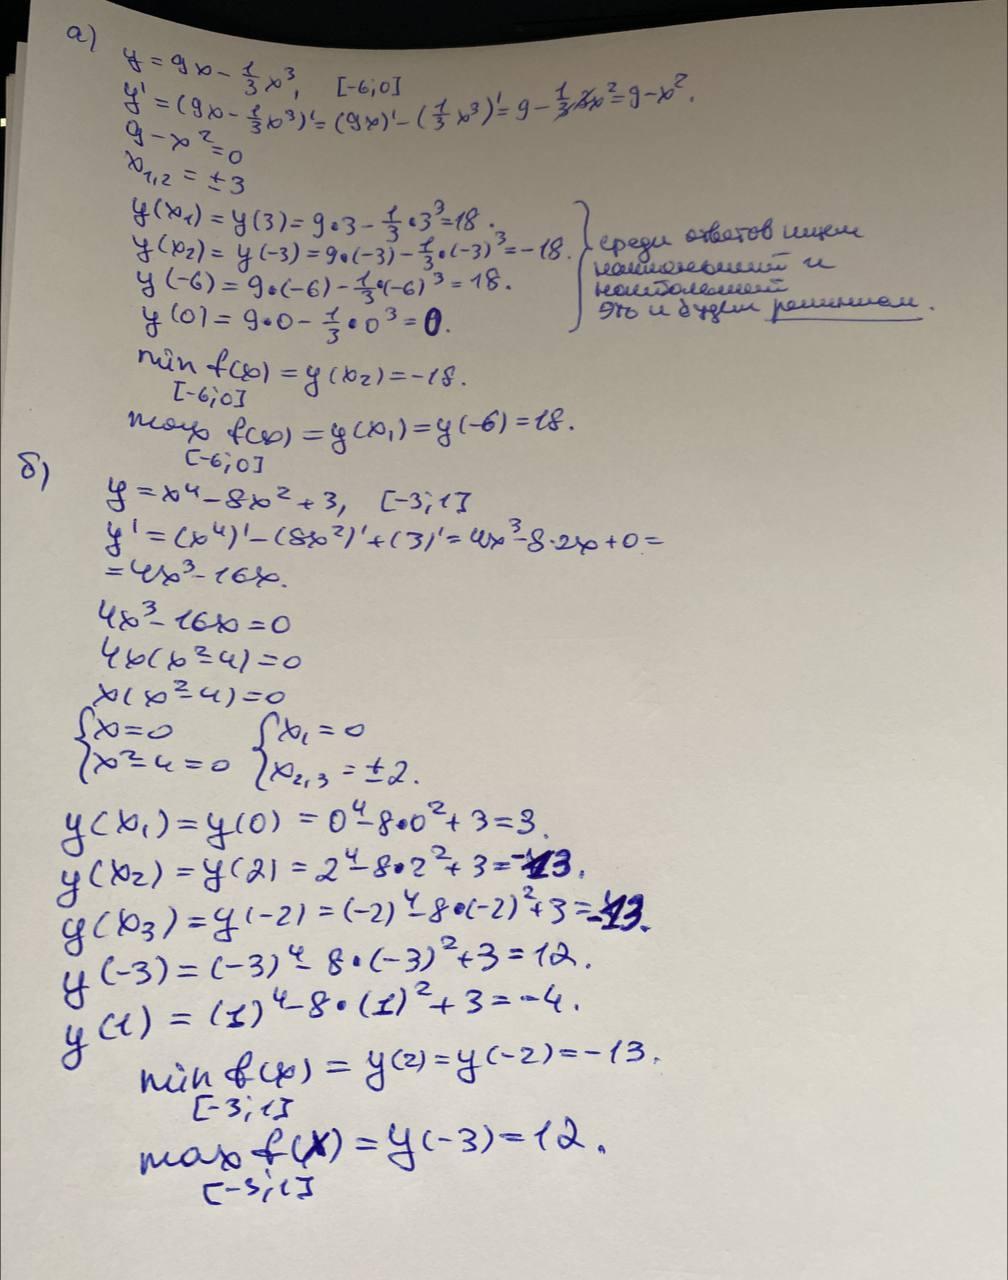 а)
y = 9x - 1/3 x³, [-6;0]
y' = (9x - 1/3 x³)' = (9x)' - (1/3 x³)' = 9 - 1/3 · 3x² = 9 - x².
9 - x² = 0
x₁,₂ = ± 3
y(x₁) = y(3) = 9·3 - 1/3 · 3³ = 18.
y(x₂) = y(-3) = 9·(-3) - 1/3 · (-3)³ = -18.
y(-6) = 9·(-6) - 1/3 · (-6)³ = 18.
y(0) = 9·0 - 1/3 · 0³ = 0.
среди ответов ищем
наименьший и
наибольший
это и будет решением.
min f(x) = y(x₂) = -18.
[-6;0]
max f(x) = y(x₁) = y(-6) = 18.
[-6;0]
б)
y = x⁴ - 8x² + 3, [-3;1]
y' = (x⁴)' - (8x²)' + (3)' = 4x³ - 8·2x + 0 =
= 4x³ - 16x.
4x³ - 16x = 0
4x(x² - 4) = 0
x(x² - 4) = 0
{ x = 0 { x₁ = 0
{ x² - 4 = 0 { x₂,₃ = ± 2.
y(x₁) = y(0) = 0⁴ - 8·0² + 3 = 3.
y(x₂) = y(2) = 2⁴ - 8·2² + 3 = -13.
y(x₃) = y(-2) = (-2)⁴ - 8·(-2)² + 3 = -13.
y(-3) = (-3)⁴ - 8·(-3)² + 3 = 12.
y(1) = (1)⁴ - 8·(1)² + 3 = -4.
min f(x) = y(2) = y(-2) = -13.
[-3;1]
max f(x) = y(-3) = 12.
[-3;1]